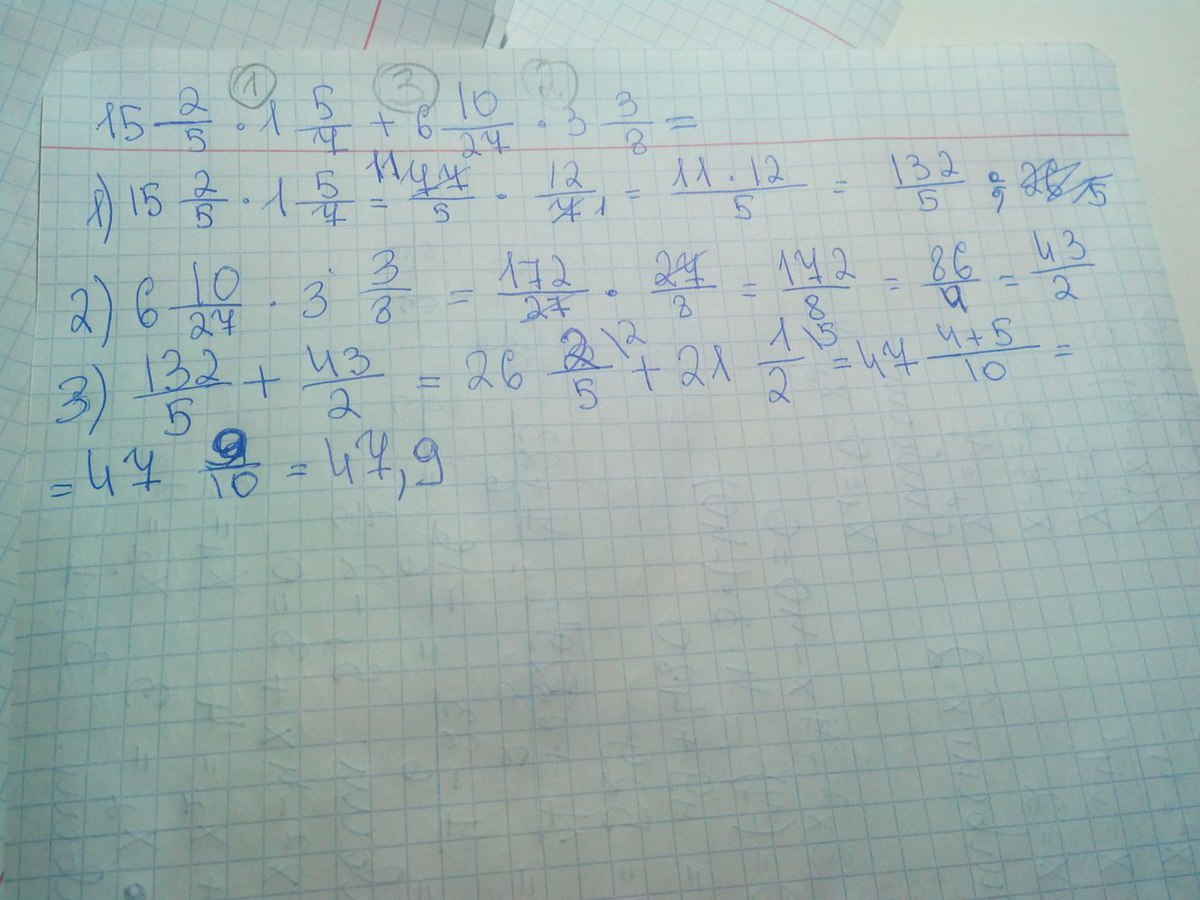 ① ③ ②
15 2/5 · 1 5/7 + 6 10/27 · 3 3/8 =
1) 15 2/5 · 1 5/7 = 11 77/5 · 12/7 1 = 11 · 12/5 = 132/5 ;
2) 6 10/27 · 3 3/8 = 172/27 · 27/8 = 172/8 = 86/4 = 43/2
3) 132/5 + 43/2 = 26 2\2/5 + 21 1\5/2 = 47 4+5/10 =
= 47 9/10 = 47,9